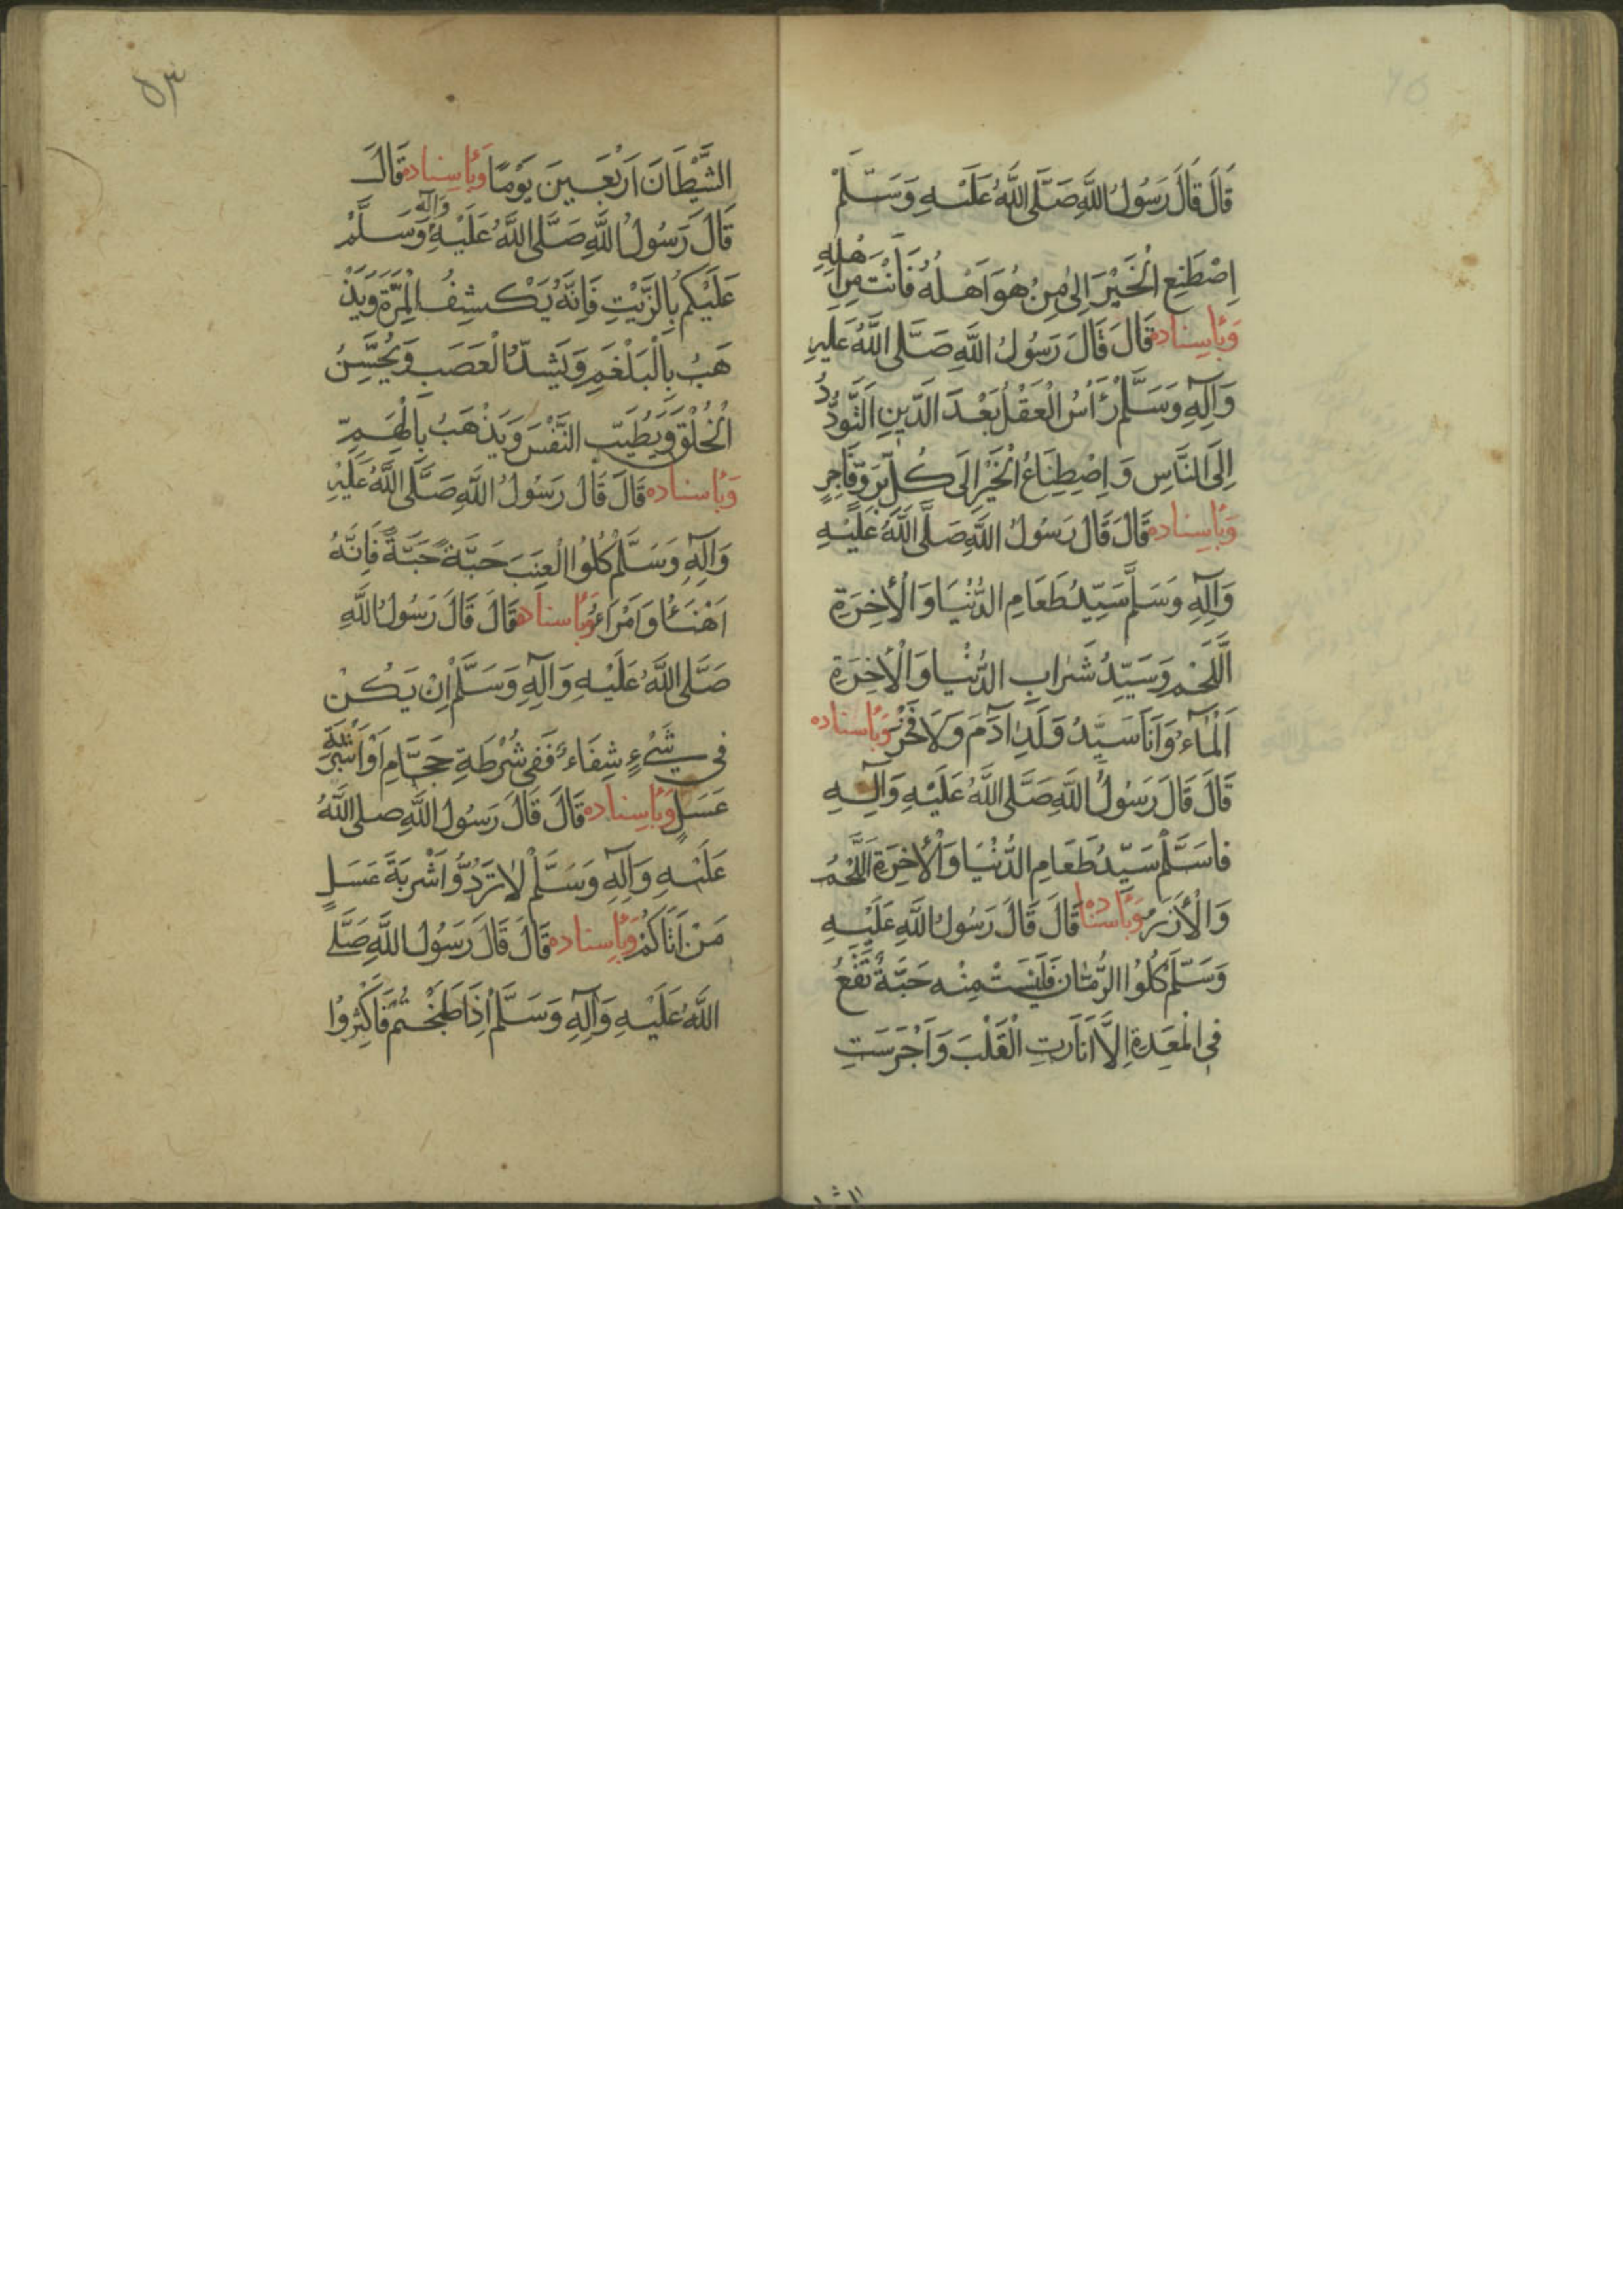 قَالَ قَالَ رَسُولُ اللَّهِ صَلَّى اللَّهُ عَلَيْهِ وَسَلَّمْ
اِصْطَنِعِ الْخَيْرَ اِلىٰ مِنْ هُوَ اَهْلُهُ فَاَنْتَ مِنْ اَهْلِهِ
وَبِاِسِنادِه قَالَ قَالَ رَسُولُ اللَّهِ صَلَّى اللَّهُ عَلَيْهِ
وَآلِهِ وَسَلَّمْ رَأْسُ الْعَقْلِ بَعْدَ الدِّينِ التَّوَدُّدُ
اِلَى النَّاسِ وَ اِصْطِنَاعُ الْخَيْرِ اِلَى كُلِّ بَرٍّ وَفَاجِرٍ
وَبِاِسِنادِه قَالَ قَالَ رَسُولُ اللَّهِ صَلَّى اللَّهُ عَلَيْهِ
وَآلِهِ وَسَلَّمَ سَيِّدُ طَعَامِ الدُّنْيَا وَالْأَخِرَةِ
اَللَّحْمِ وَسَيِّدُ شَرَابِ الدُّنْيَا وَالْأَخِرَةِ
اَلْمَآءُ وَاَنَا سَيِّدُ وَلَدِ آدَمَ وَلَا فَخْرْ وَبِاِسناده
قَالَ قَالَ رَسُولُ اللَّهِ صَلَّى اللَّهُ عَلَيْهِ وَآلِهِ
فاسَلَّمْ سَيِّدُ طَعَامِ الدُّنْيَا وَالْأَخِرَةِ اَللَّحْمُ
وَالْأَرُزُ وَبِاِسنادِه قَالَ قَالَ رَسُولُ اللَّهِ عَلَيْهِ
وَسَلَّمَ كُلُوا الرُّمَّانَ فَلَيْسَتْ مِنْه حَبَّةٌ تَقَعُ
فِي الْمَعِدَةِ اِلَّا اَنَارَتِ الْقَلْبَ وَاَخْرَسَتِ
٥٣
الشَّيْطَانَ اَرْبَعِينَ يَوْمًا وَبِاِسِنادِه قَالَ
قَالَ رَسُولُ اللَّهِ صَلَّى اللَّهُ عَلَيْهِ وَآلِهِ وَسَلَّمْ
عَلَيْكُم بِالزَّيْتِ فَاِنَّهُ يَكْشِفُ الْمِرَّةَ وَيَذْ
هَبُ بِالْبَلْغَمِ وَيَشِدُّ الْعَصَبَ وَيُحَسِّنُ
الْخُلْقَ وَيُطَيِّب النَّفْسَ وَيَذْهَبُ بِالْهَمِّ
وَبِاِسناده قَالَ قَالَ رَسُولُ اللَّهِ صَلَّى اللَّهُ عَلَيْهِ
وَآلِهِ وَسَلَّمْ كُلُوا الْعِنَبَ حَبَّةً حَبَّةً فَاِنَّهُ
اَهْنَأُ وَاَمْرَاءُ وَبِاِسناده قَالَ قَالَ رَسُولُ اللَّهِ
صَلَّى اللَّهُ عَلَيْهِ وَآلِهِ وَسَلَّمْ اِنْ يَكُنْ
فِي شَيْءٍ شِفَاءٌ فَفِي شُرْطَةِ حَجَّامٍ اَوْ اَشْرِبَةِ
عَسَلٍ وَبِاِسِنادِه قَالَ قَالَ رَسُولُ اللَّهِ صلى اللَّهُ
عَلَيْهِ وَآلِهِ وَسَلَّمْ لَا تَرُدُّوا اَشْرِبَةَ عَسَلٍ
مَنْ اَتَاكُمْ وَبِاِسِناده قَالَ قَالَ رَسُولُ اللَّهِ صَلَّى
اللَّهُ عَلَيْهِ وَآلِهِ وَسَلَّمْ اِذَا طَبَخْتُمْ فَاَكْثِرُوا